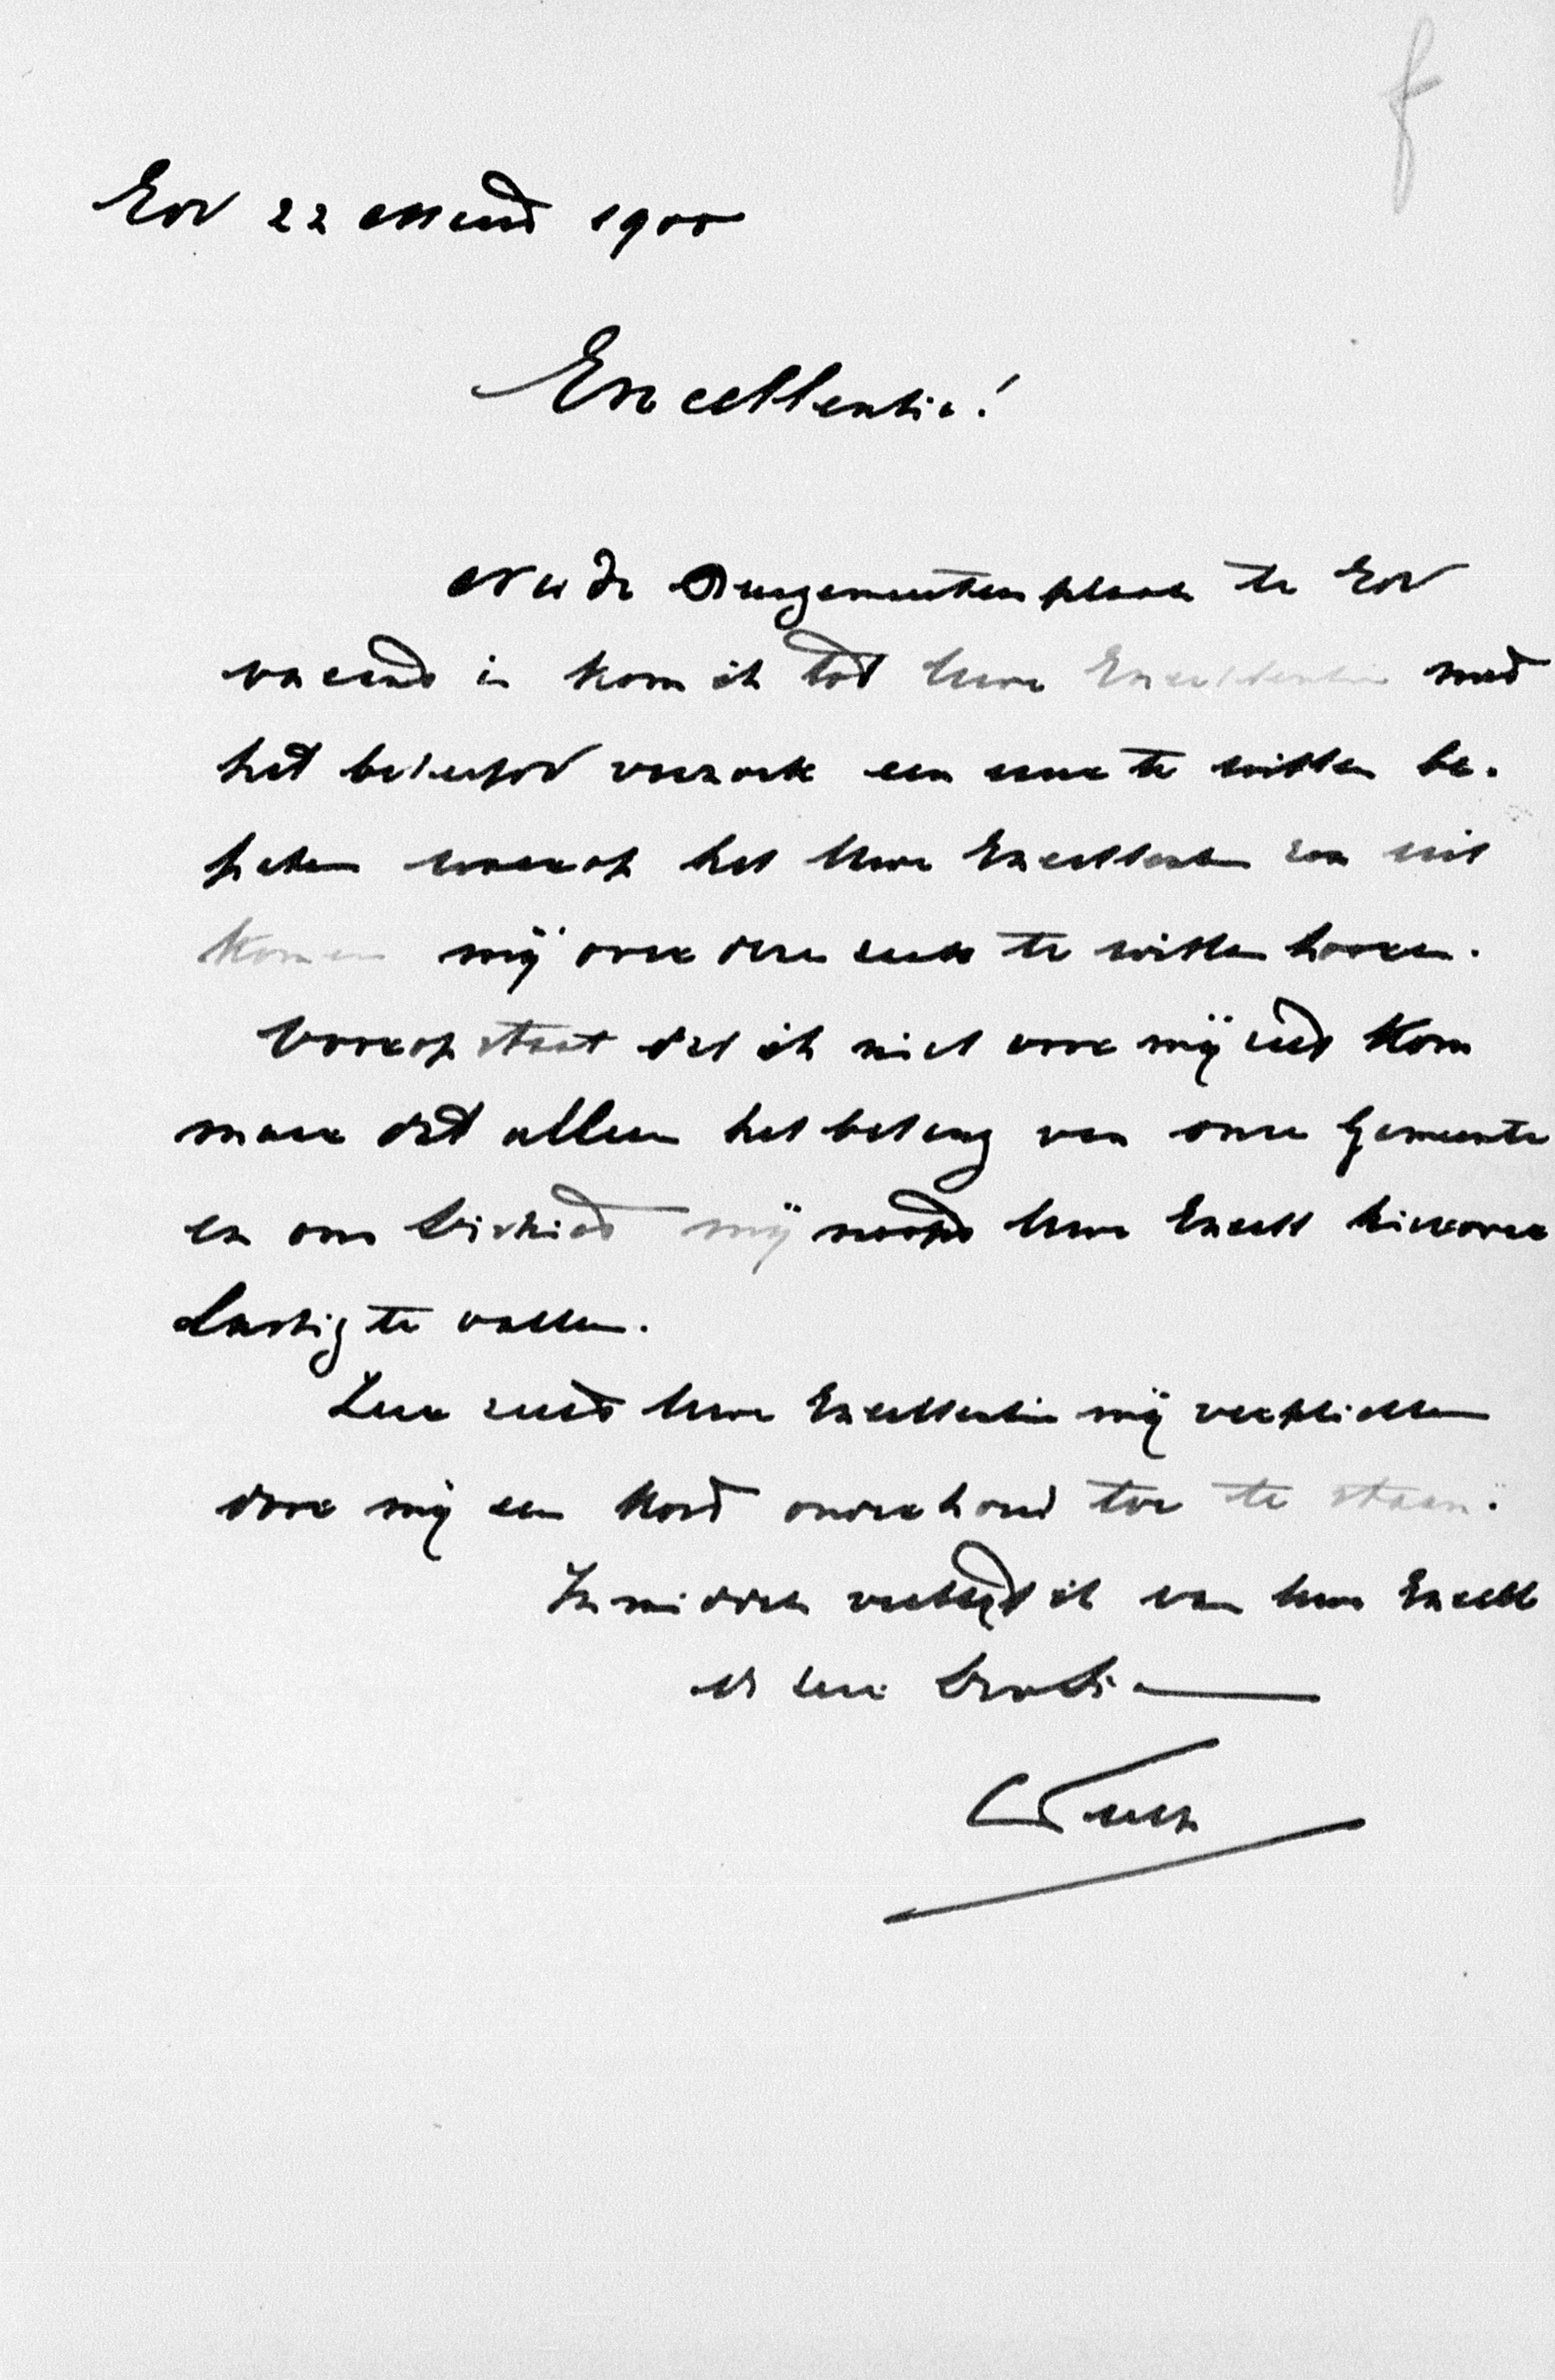 22 Maart 1900
Excellentie!
Nu de Burgemeestersplaats te
vacant is kom ik tot Uwe Excellentie met
het beleefd verzoek een uur te willen be-
palen waarop het Uwe Excellentie zou uit
komen mij over deze zaak te willen hooren.
Voorop staat dat ik niet voor mij zelf kom
maar dat alleen het belang van onze Gemeente
en ons mij noopt Uwe Excell hierover
Lastig te vallen.
Zeer zult Uwe Excellentie mij verplichten
door mij een kort onderhoud toe te staan.
Inmiddels verblijf ik van Uwe Excell